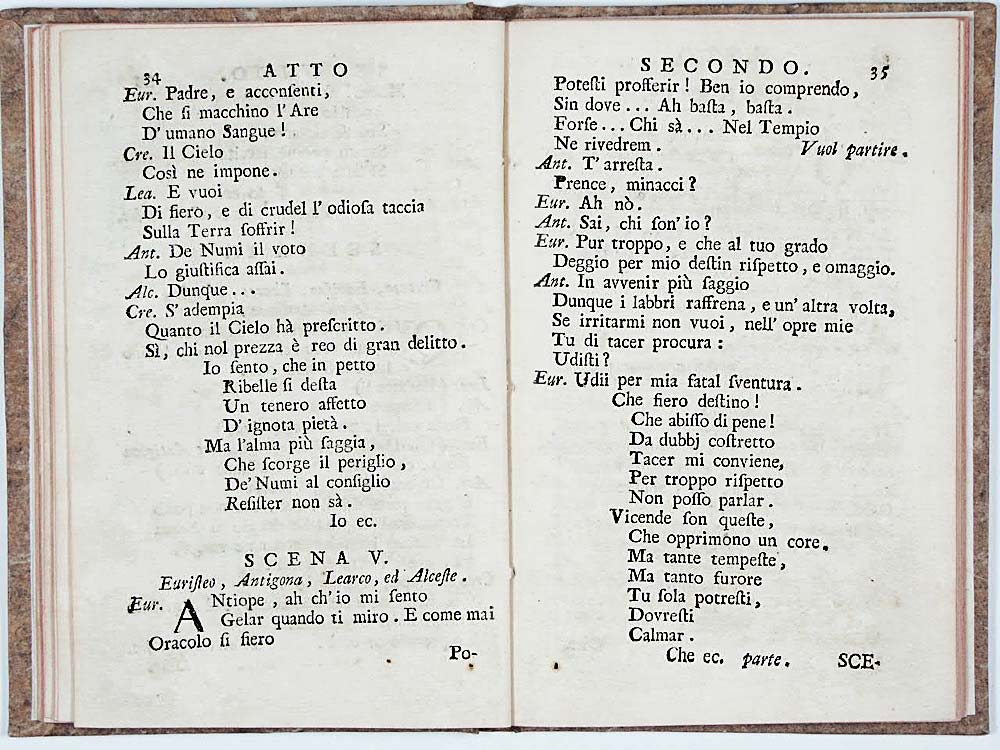 34 ATTO
Eur. Padre, e acconſenti,
Che ſi macchino l'Are
D'umano Sangue!
Cre. Il Cielo
Così ne impone.
Lea. E vuoi
Di fiero, e di crudel l'odioſa taccia
Sulla Terra ſoffrir!
Ant. De Numi il voto
Lo giuſtifica aſſai.
Alc. Dunque...
Cre. S'adempia
Quanto il Cielo hà preſcritto.
Sì, chi nol prezza è reo di gran delitto.
Io ſento, che in petto
Ribelle ſi deſta
Un tenero affetto
D'ignota pietà.
Ma l'alma più ſaggia,
Che ſcorge il periglio,
De' Numi al conſiglio
Reſiſter non sà.
Io ec.
SCENA V.
Euriſteo, Antigona, Learco, ed Alceſte.
Eur. ANtiope, ah ch'io mi ſento
Gelar quando ti miro. E come mai
Oracolo ſi fiero
Po-
SECONDO. 35
Poteſti profferir! Ben io comprendo,
Sin dove... Ah baſta, baſta.
Forſe... Chi sà... Nel Tempio
Ne rivedrem. Vuol partire.
Ant. T'arreſta.
Prence, minacci?
Eur. Ah nò.
Ant. Sai, chi ſon'io?
Eur. Pur troppo, e che al tuo grado
Deggio per mio deſtin riſpetto, e omaggio.
Ant. In avvenir più ſaggio
Dunque i labbri raffrena, e un'altra volta,
Se irritarmi non vuoi, nell'opre mie
Tu di tacer procura:
Udiſti?
Eur. Udii per mia fatal ſventura.
Che fiero deſtino!
Che abiſſo di pene!
Da dubbj coſtretto
Tacer mi conviene,
Per troppo riſpetto
Non poſſo parlar.
Vicende ſon queſte,
Che opprimono un core.
Ma tante tempeſte,
Ma tanto furore
Tu ſola potreſti,
Dovreſti
Calmar.
Che ec. parte. SCE-